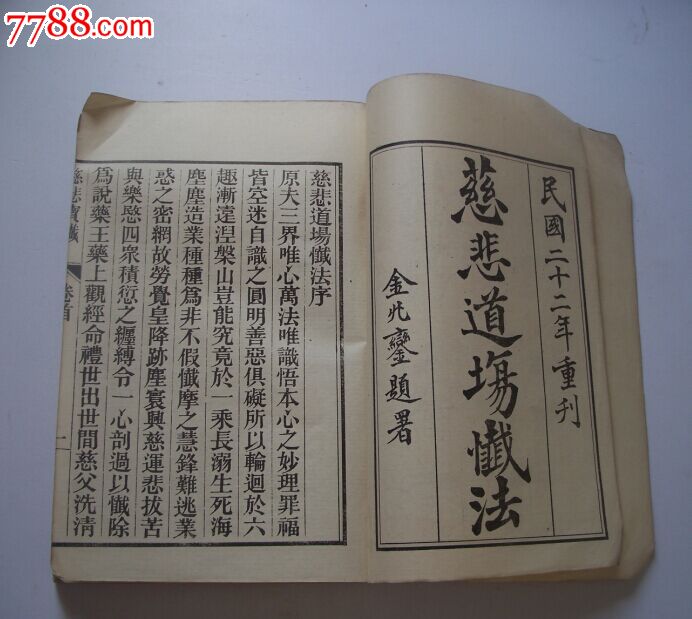 7788.com
民國二十二年重刊
慈悲道場懺法
金兆鑾題署
慈悲道場懺法序
原夫三界唯心萬法唯識悟本心之妙理罪福
皆空迷自識之圓明善惡俱礙所以輪迴於六
趣漸遠涅槃山豈能究竟於一乘長溺生死海
塵塵造業種種爲非不假懺摩之慧鋒難逃業
惑之密網故勞覺皇降跡塵寰興慈運悲拔苦
與樂愍四衆積愆之纏縛令一心剖過以懺除
爲說藥王藥上觀經命禮世出世間慈父洗清
慈悲寶懺
卷首
二